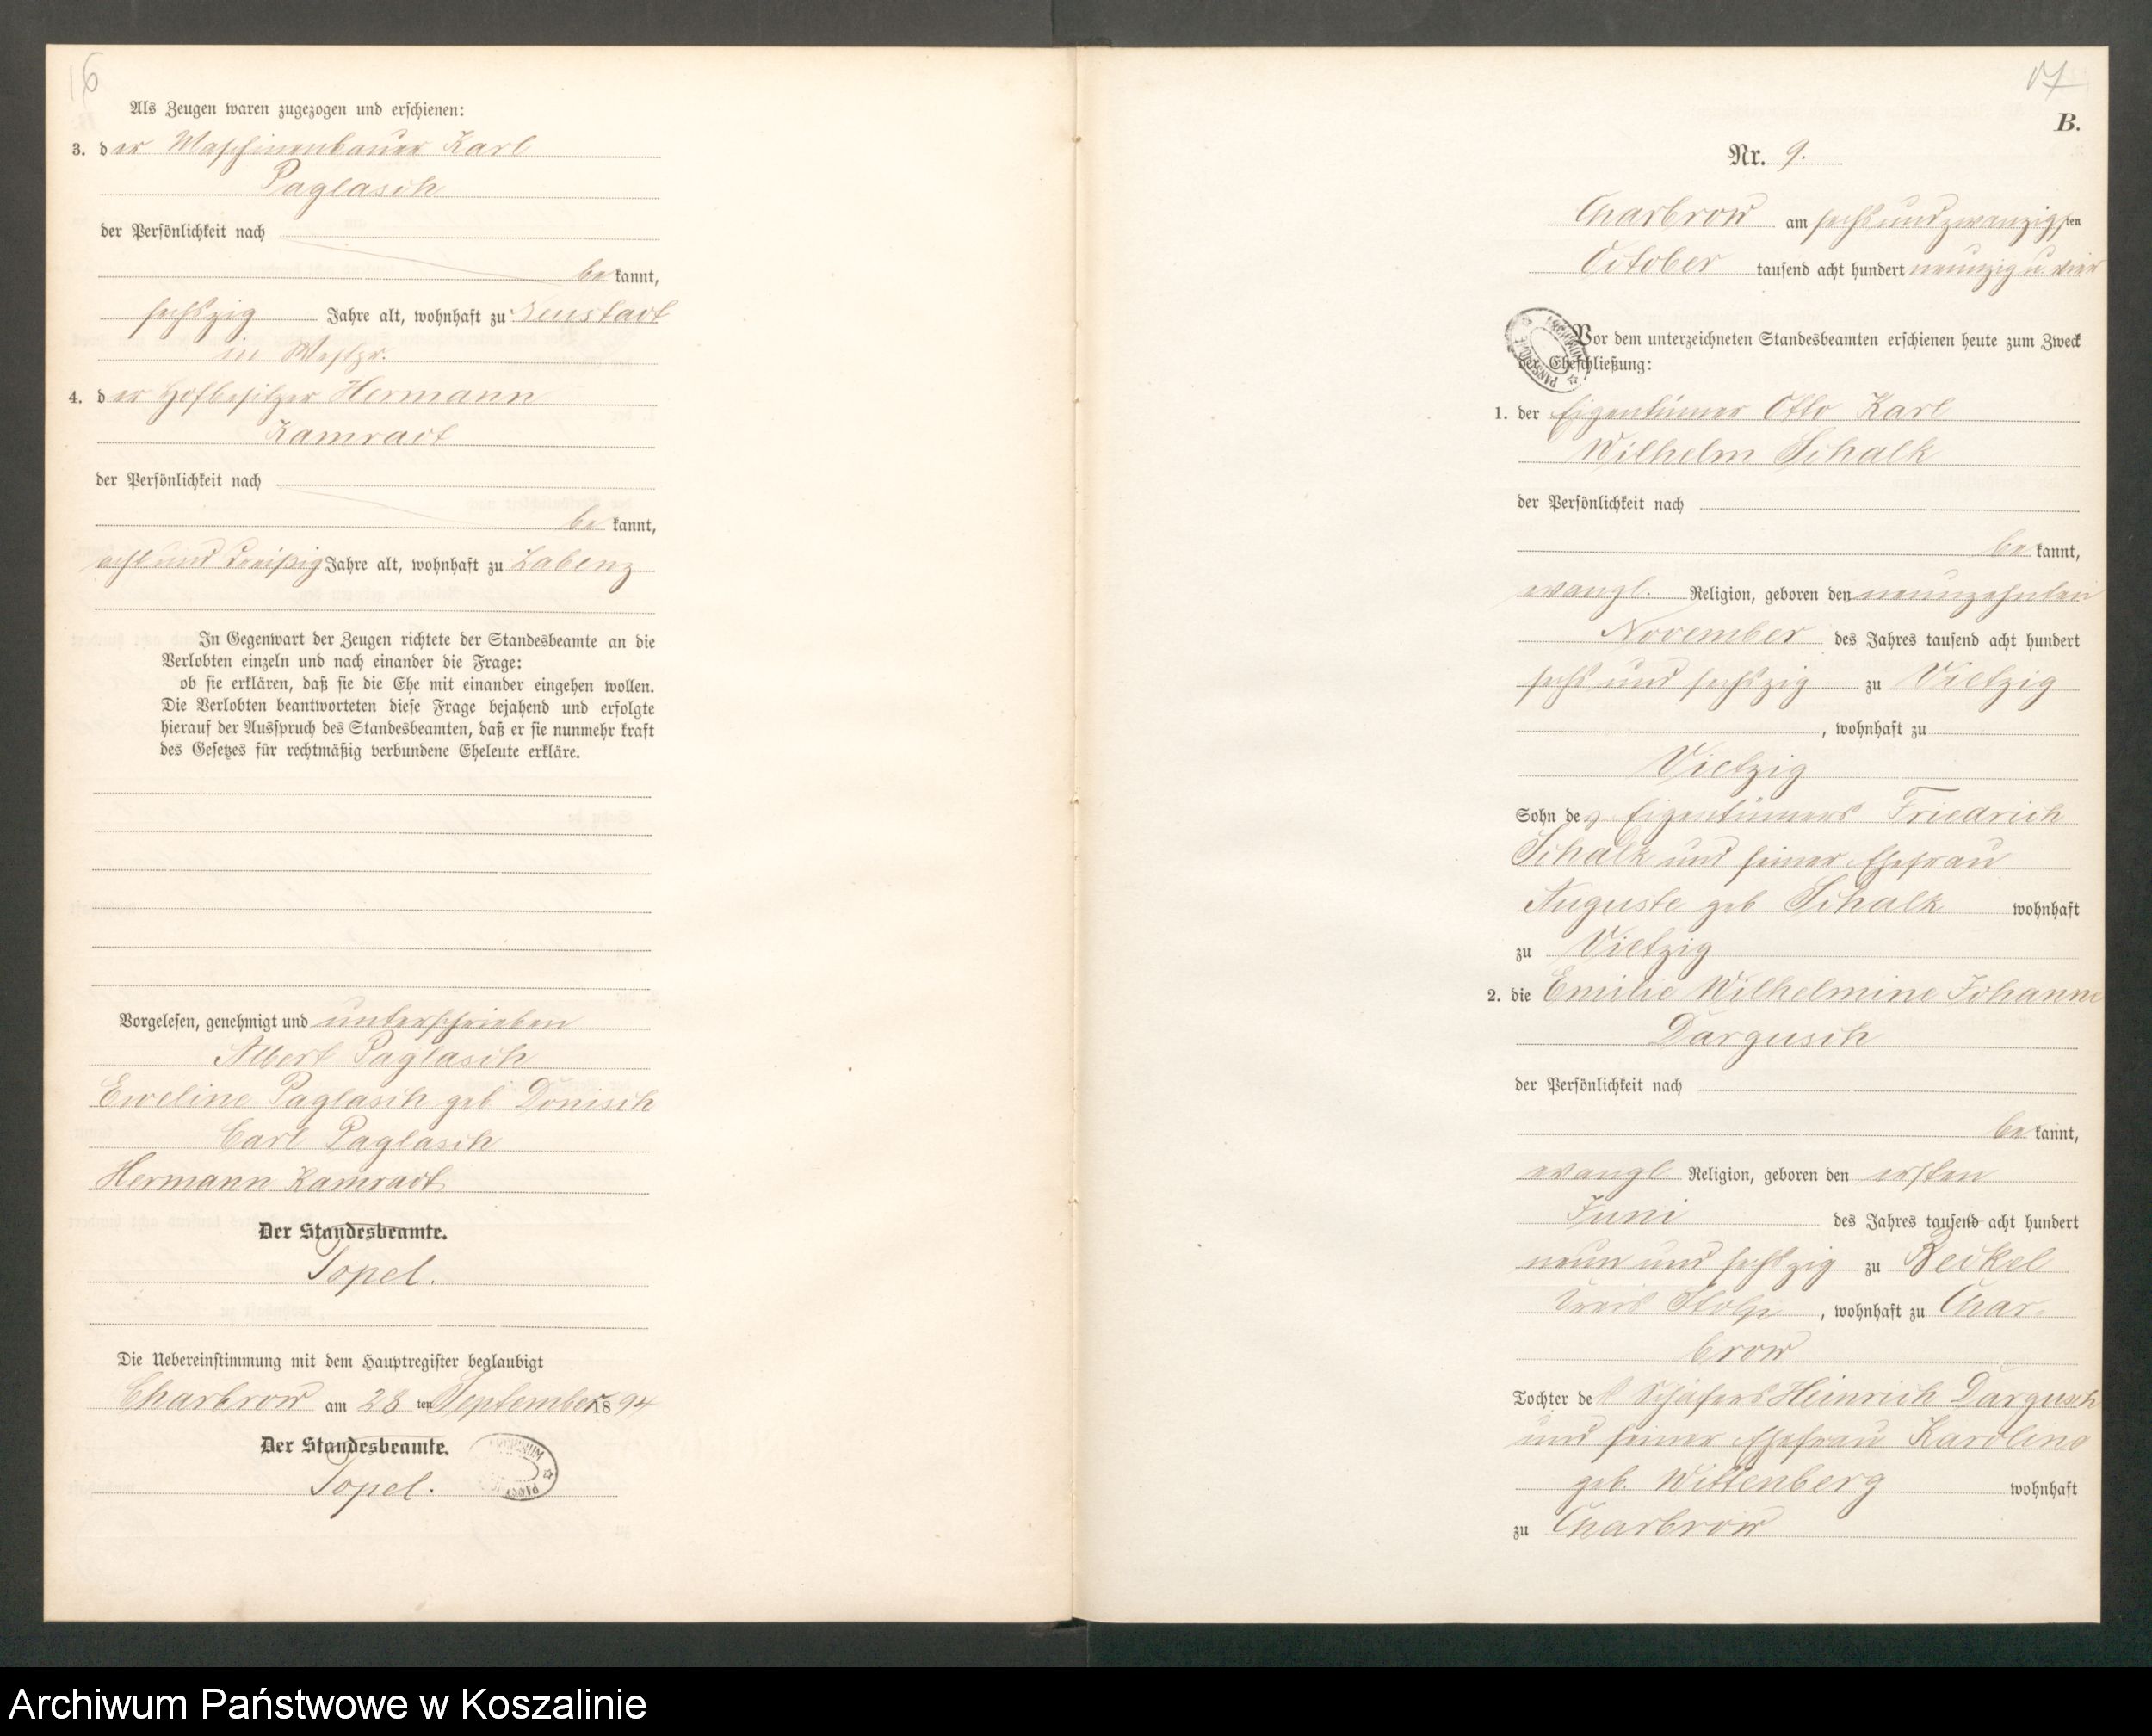 16
Als Zeugen waren zugezogen und erschienen:
3. der Maschinenbauer Karl
Paglasch
der Persönlichkeit nach
bekannt,
sechszig Jahre alt, wohnhaft zu Neustadt
in Westpr.
4. der Hofbesitzer Hermann
Kamradt
der Persönlichkeit nach
bekannt,
acht und dreißig Jahre alt, wohnhaft zu Labenz
In Gegenwart der Zeugen richtete der Standesbeamte an die
Verlobten einzeln und nach einander die Frage:
ob sie erklären, daß sie die Ehe mit einander eingehen wollen.
Die Verlobten beantworteten diese Frage bejahend und erfolgte
hierauf der Ausspruch des Standesbeamten, daß er sie nunmehr kraft
des Gesetzes für rechtmäßig verbundene Eheleute erkläre.
Vorgelesen, genehmigt und unterschrieben
Albert Paglasch
Eweline Paglasch geb Donisch
Carl Paglasch
Hermann Kamradt
Der Standesbeamte.
Topel.
Die Uebereinstimmung mit dem Hauptregister beglaubigt
Charbrow am 28ten September 1894
Der Standesbeamte.
Topel.
17
B.
Nr. 9.
Charbrow am sechs und zwanzigsten
October tausend acht hundert neunzig u. vier
Vor dem unterzeichneten Standesbeamten erschienen heute zum Zweck
der Eheschließung:
1. der Eigentümer Otto Karl
Wilhelm Schalk
der Persönlichkeit nach
bekannt,
evangl. Religion, geboren den neunzehnten
November des Jahres tausend acht hundert
sechs und sechszig zu Vietzig
, wohnhaft zu
Vietzig
Sohn des Eigentümers Friedrich
Schalk und seiner Ehefrau
Auguste geb Schalk wohnhaft
zu Vietzig
2. die Emilie Wilhelmine Johanne
Dargusch
der Persönlichkeit nach
bekannt,
evangl. Religion, geboren den ersten
Juni des Jahres tausend acht hundert
neun und sechszig zu Beckel
Kreis Stolp, wohnhaft zu Char-
brow
Tochter des Schäfers Heinrich Dargusch
und seiner Ehefrau Karoline
geb. Wittenberg wohnhaft
zu Charbrow
Archiwum Państwowe w Koszalinie